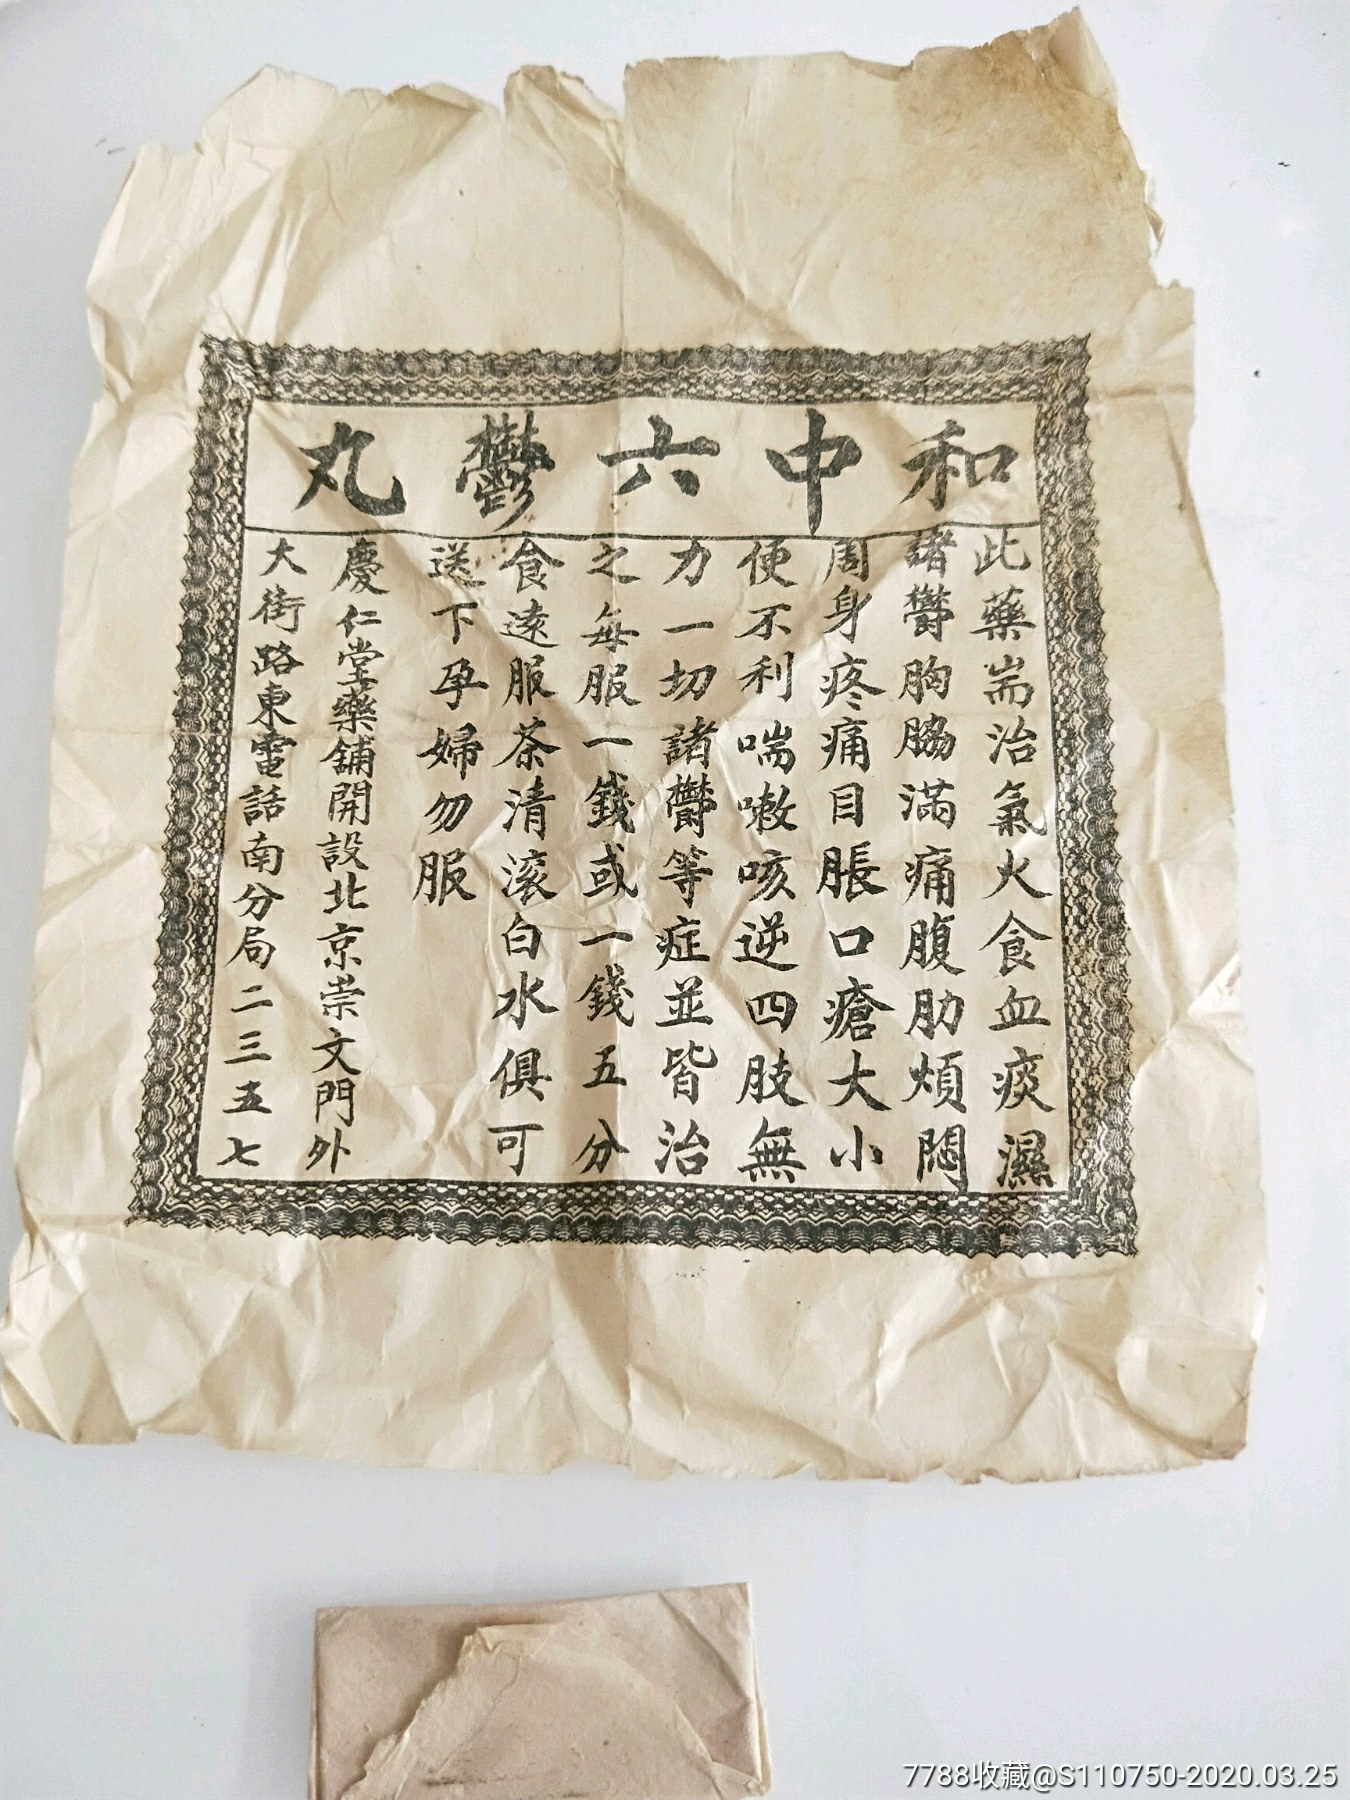 和中六鬱丸
此藥耑治氣火食血痰濕
諸鬱胸脇滿痛腹肋煩悶
周身疼痛目脹口瘡大小
便不利喘嗽咳逆四肢無
力一切諸鬱等症並皆治
之每服一錢或一錢五分
食遠服茶清滚白水俱可
送下孕婦勿服
慶仁堂藥舖開設北京崇文門外
大街路東電話南分局二三五七
7788收藏@S110750-2020.03.25